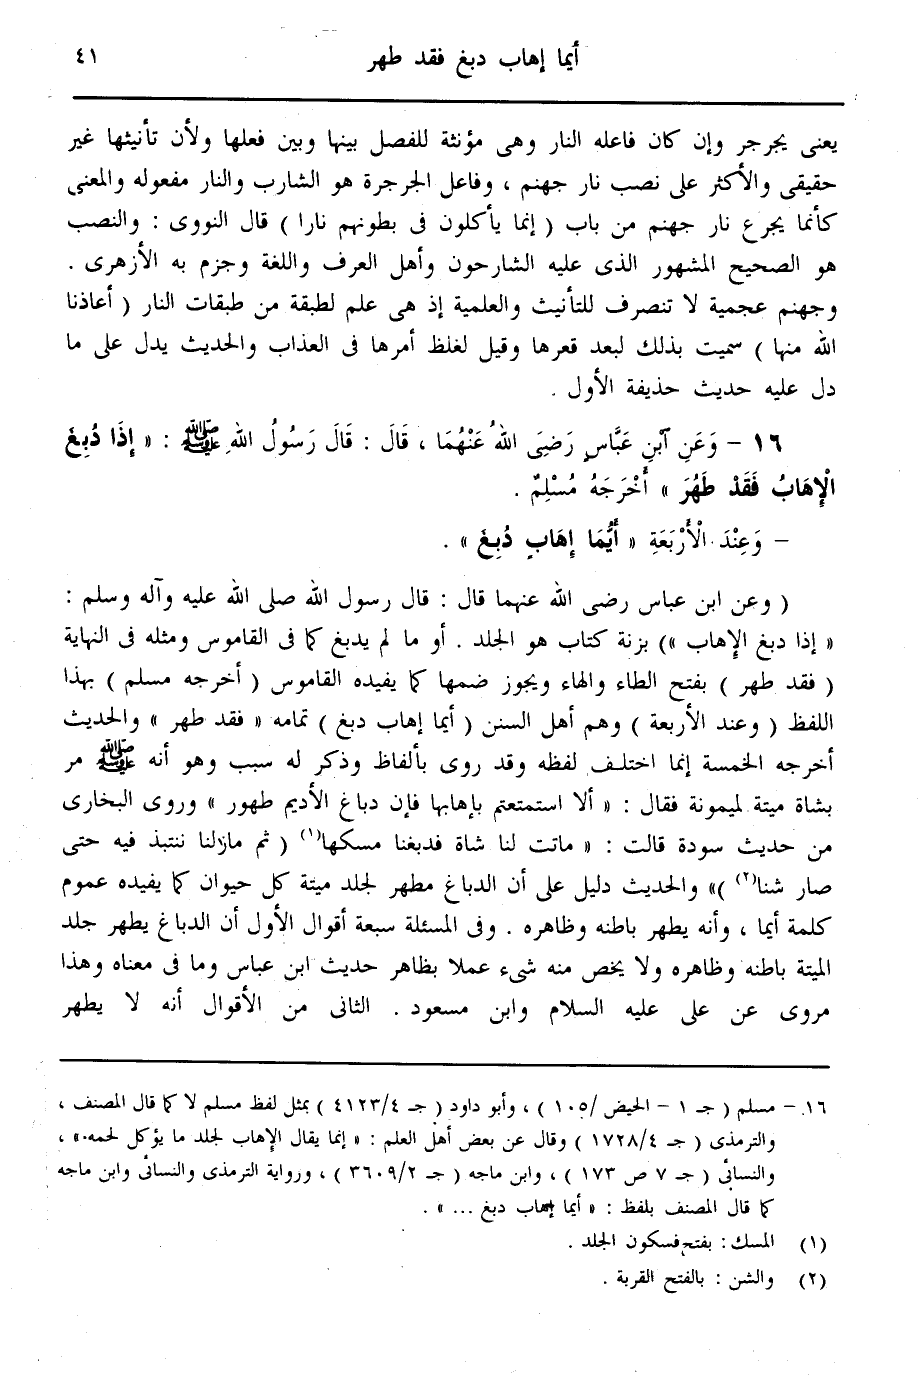 أيما إهاب دبغ فقد طهر ٤١
يعنى يجرجر وإن كان فاعله النار وهى مؤنثة للفصل بينها وبين فعلها ولأن تأنيثها غير
حقيقى والأكثر على نصب نار جهنم ، وفاعل الجرجرة هو الشارب والنار مفعوله والمعنى
كأنما يجرع نار جهنم من باب ( إنما يأكلون فى بطونهم نارا ) قال النووى : والنصب
هو الصحيح المشهور الذى عليه الشارحون وأهل العرف واللغة وجزم به الأزهرى .
وجهنم عجمية لا تنصرف للتأنيث والعلمية إذ هى علم لطبقة من طبقات النار ( أعاذنا
الله منها ) سميت بذلك لبعد قعرها وقيل لغلظ أمرها فى العذاب والحديث يدل على ما
دل عليه حديث حذيفة الأول .
١٦ - وَعَنِ ٱبنِ عَبَّاسٍ رَضِىَ اللهُ عَنْهُمَا ، قَالَ : قَالَ رَسُولُ اللهِ ﷺ : « إِذَا دُبِغَ
الْإِهَابُ فَقَدْ طَهُرَ » أَخْرَجَهُ مُسْلِمٌ .
- وَعِنْدَ الْأَرْبَعَةِ « أَيُّمَا إِهَابٍ دُبِغَ » .
( وعن ابن عباس رضى الله عنهما قال : قال رسول الله صلى الله عليه وآله وسلم :
« إذا دبغ الإهاب ») بزنة كتاب هو الجلد . أو ما لم يدبغ كما فى القاموس ومثله فى النهاية
( فقد طهر ) بفتح الطاء والهاء ويجوز ضمها كما يفيده القاموس ( أخرجه مسلم ) بهذا
اللفظ ( وعند الأربعة ) وهم أهل السنن ( أيما إهاب دبغ ) تمامه « فقد طهر » والحديث
أخرجه الخمسة إنما اختلف لفظه وقد روى بألفاظ وذكر له سبب وهو أنه ﷺ مر
بشاة ميتة لميمونة فقال : « ألا استمتعتم بإهابها فإن دباغ الأديم طهور » وروى البخارى
من حديث سودة قالت : « ماتت لنا شاة فدبغنا مسكها(١) ( ثم مازلنا ننتبذ فيه حتى
صار شنا(٢) )» والحديث دليل على أن الدباغ مطهر لجلد ميتة كل حيوان كما يفيده عموم
كلمة أيما ، وأنه يطهر باطنه وظاهره . وفى المسئلة سبعة أقوال الأول أن الدباغ يطهر جلد
الميتة باطنه وظاهره ولا يخص منه شىء عملا بظاهر حديث ابن عباس وما فى معناه وهذا
مروى عن على عليه السلام وابن مسعود . الثانى من الأقوال أنه لا يطهر
١٦ - مسلم ( جـ ١ - الحيض /١٠٥ ) ، وأبو داود ( جـ ٤١٢٣/٤ ) بمثل لفظ مسلم لا كما قال المصنف ،
والترمذى ( جـ ١٧٢٨/٤ ) وقال عن بعض أهل العلم : « إنما يقال الإهاب لجلد ما يؤكل لحمه» ،
والنسائى ( جـ ٧ ص ١٧٣ ) ، وابن ماجه ( جـ ٣٦٠٩/٢ ) ، ورواية الترمذى والنسائى وابن ماجه
كما قال المصنف بلفظ : « أيما إهاب دبغ ... » .
(١) المسك : بفتح فسكون الجلد .
(٢) والشن : بالفتح القربة .